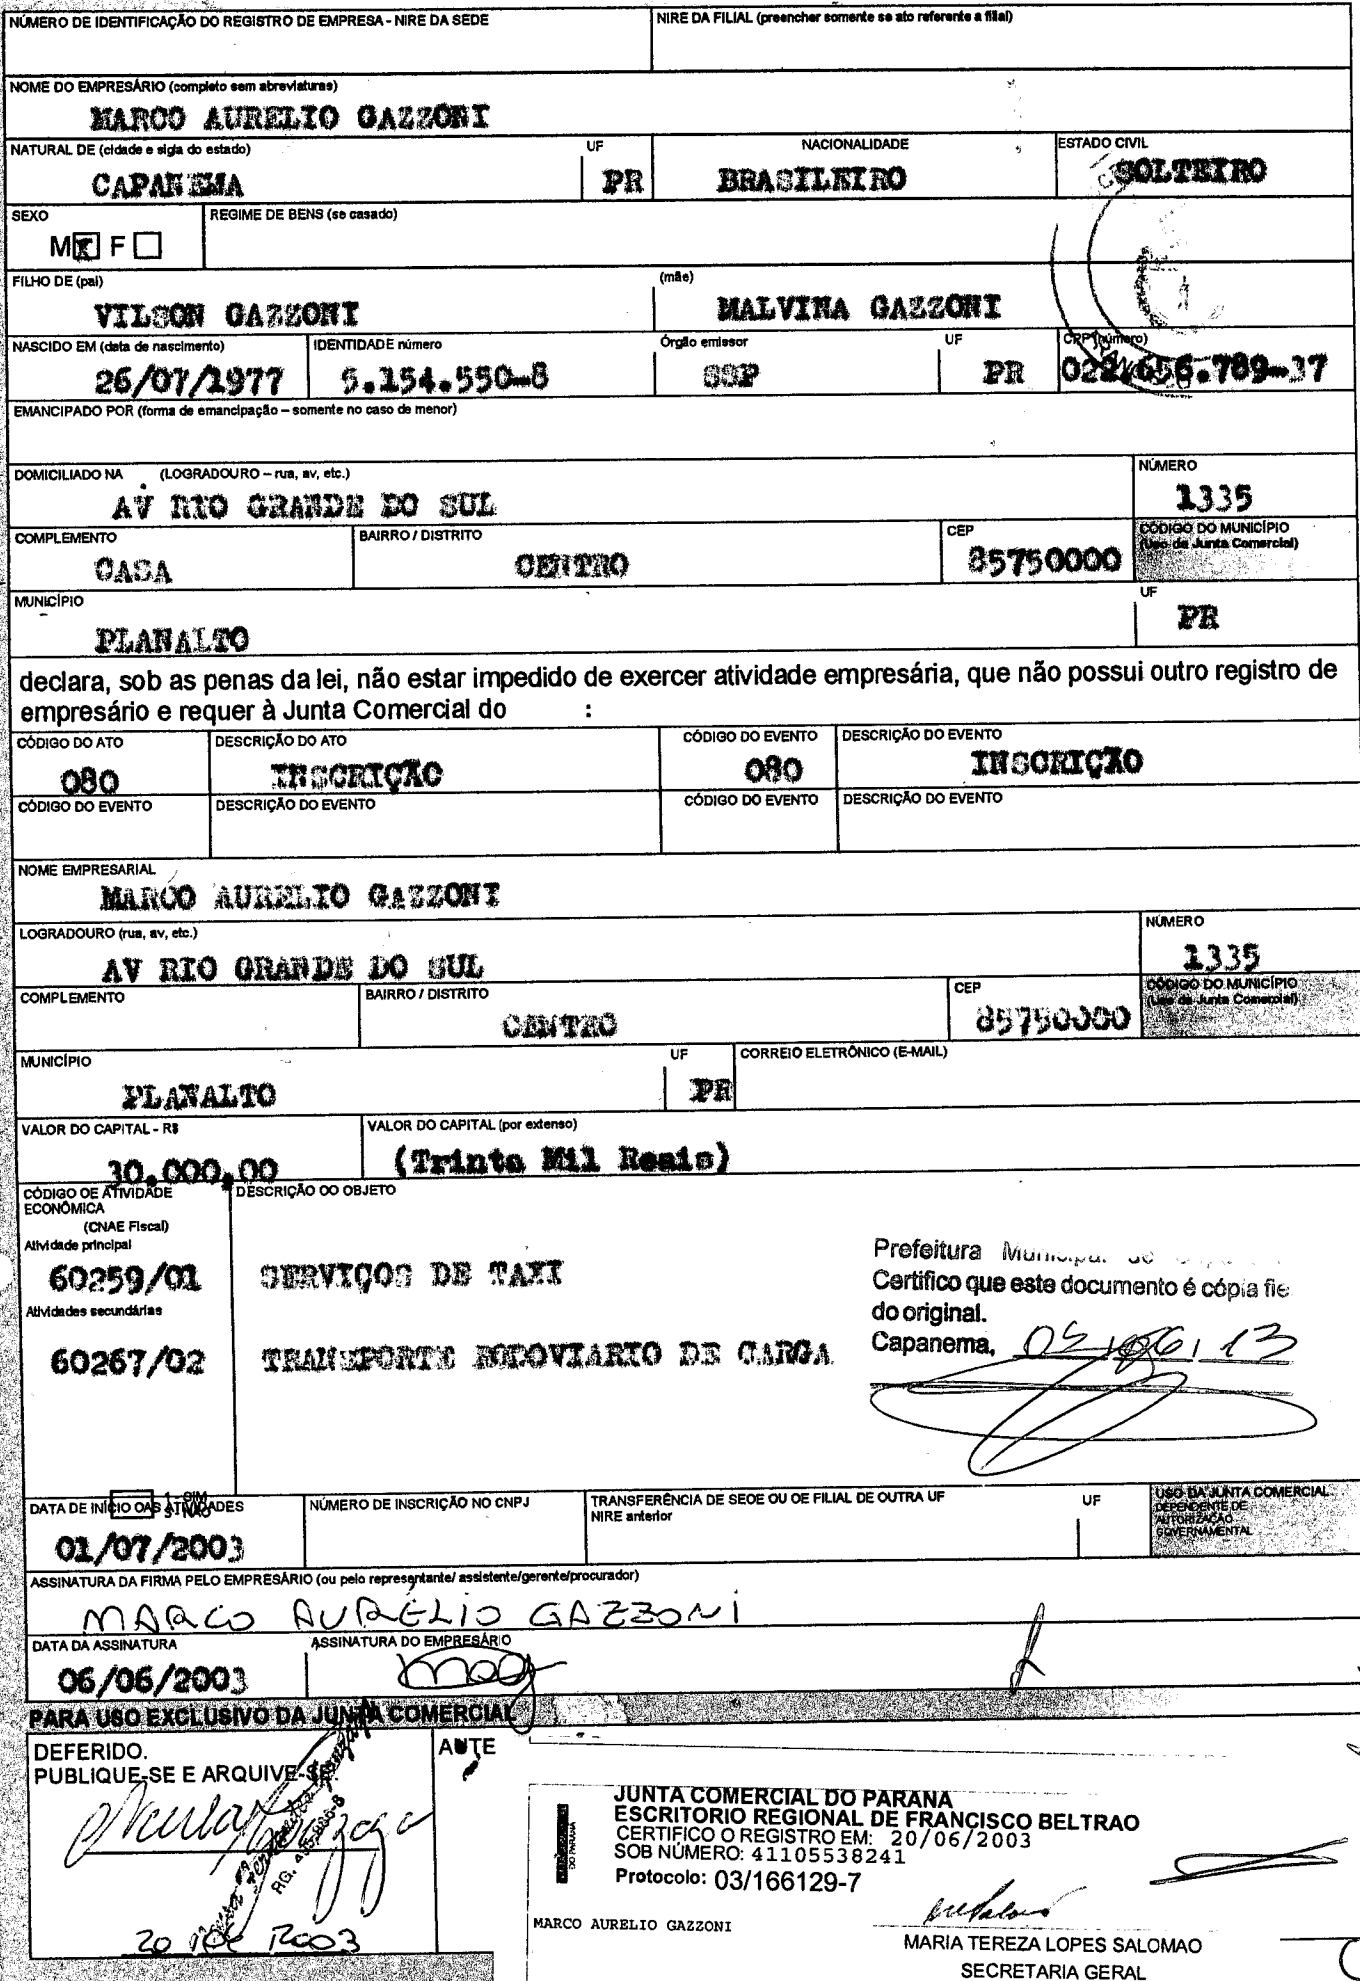 NÚMERO DE IDENTIFICAÇÃO DO REGISTRO DE EMPRESA - NIRE DA SEDE
NIRE DA FILIAL (preencher somente se ato referente a filial)
NOME DO EMPRESÁRIO (completo sem abreviaturas)
MARCO AURELIO GAZZONI
NATURAL DE (cidade e sigla do estado) UF NACIONALIDADE ESTADO CIVIL
CAPANEMA PR BRASILEIRO SOLTEIRO
SEXO REGIME DE BENS (se casado)
M X F
FILHO DE (pai) (mãe)
VILSON GAZZONI MALVINA GAZZONI
NASCIDO EM (data de nascimento) IDENTIDADE número Órgão emissor UF CPF (número)
26/07/1977 5.154.550-8 SSP PR 022.656.789-37
EMANCIPADO POR (forma de emancipação – somente no caso de menor)
DOMICILIADO NA (LOGRADOURO – rua, av, etc.) NÚMERO
AV RIO GRANDE DO SUL 1335
COMPLEMENTO BAIRRO / DISTRITO CEP CÓDIGO DO MUNICÍPIO
(Uso da Junta Comercial)
CASA CENTRO 85750000
MUNICÍPIO UF
PLANALTO PR
declara, sob as penas da lei, não estar impedido de exercer atividade empresária, que não possui outro registro de
empresário e requer à Junta Comercial do :
CÓDIGO DO ATO DESCRIÇÃO DO ATO CÓDIGO DO EVENTO DESCRIÇÃO DO EVENTO
080 INSCRIÇÃO 080 INSCRIÇÃO
CÓDIGO DO EVENTO DESCRIÇÃO DO EVENTO CÓDIGO DO EVENTO DESCRIÇÃO DO EVENTO
NOME EMPRESARIAL
MARCO AURELIO GAZZONI
LOGRADOURO (rua, av, etc.) NÚMERO
AV RIO GRANDE DO SUL 1335
COMPLEMENTO BAIRRO / DISTRITO CEP CÓDIGO DO MUNICÍPIO
(Uso da Junta Comercial)
CENTRO 85750000
MUNICÍPIO UF CORREIO ELETRÔNICO (E-MAIL)
PLANALTO PR
VALOR DO CAPITAL - R$ VALOR DO CAPITAL (por extenso)
30.000,00 (Trinta Mil Reais)
CÓDIGO DE ATIVIDADE DESCRIÇÃO DO OBJETO
ECONÔMICA
(CNAE Fiscal)
Atividade principal
60259/01 SERVIÇOS DE TAXI
Atividades secundárias
60267/02 TRANSPORTE RODOVIARIO DE CARGA
Prefeitura Municipal de
Certifico que este documento é cópia fie
do original.
Capanema, 05/06/13
DATA DE INÍCIO DAS ATIVIDADES 1 - SIM 3 - NÃO
NÚMERO DE INSCRIÇÃO NO CNPJ
TRANSFERÊNCIA DE SEDE OU DE FILIAL DE OUTRA UF
NIRE anterior
UF
USO DA JUNTA COMERCIAL
DEPENDENTE DE
AUTORIZAÇÃO
GOVERNAMENTAL
01/07/2003
ASSINATURA DA FIRMA PELO EMPRESÁRIO (ou pelo representante/ assistente/gerente/procurador)
MARCO AURELIO GAZZONI
DATA DA ASSINATURA ASSINATURA DO EMPRESÁRIO
06/06/2003
PARA USO EXCLUSIVO DA JUNTA COMERCIAL
DEFERIDO.
PUBLIQUE-SE E ARQUIVE-SE.
AUTE
20 2003
JUNTA COMERCIAL DO PARANA
ESCRITORIO REGIONAL DE FRANCISCO BELTRAO
CERTIFICO O REGISTRO EM: 20/06/2003
SOB NÚMERO: 41105538241
Protocolo: 03/166129-7
MARCO AURELIO GAZZONI
MARIA TEREZA LOPES SALOMAO
SECRETARIA GERAL